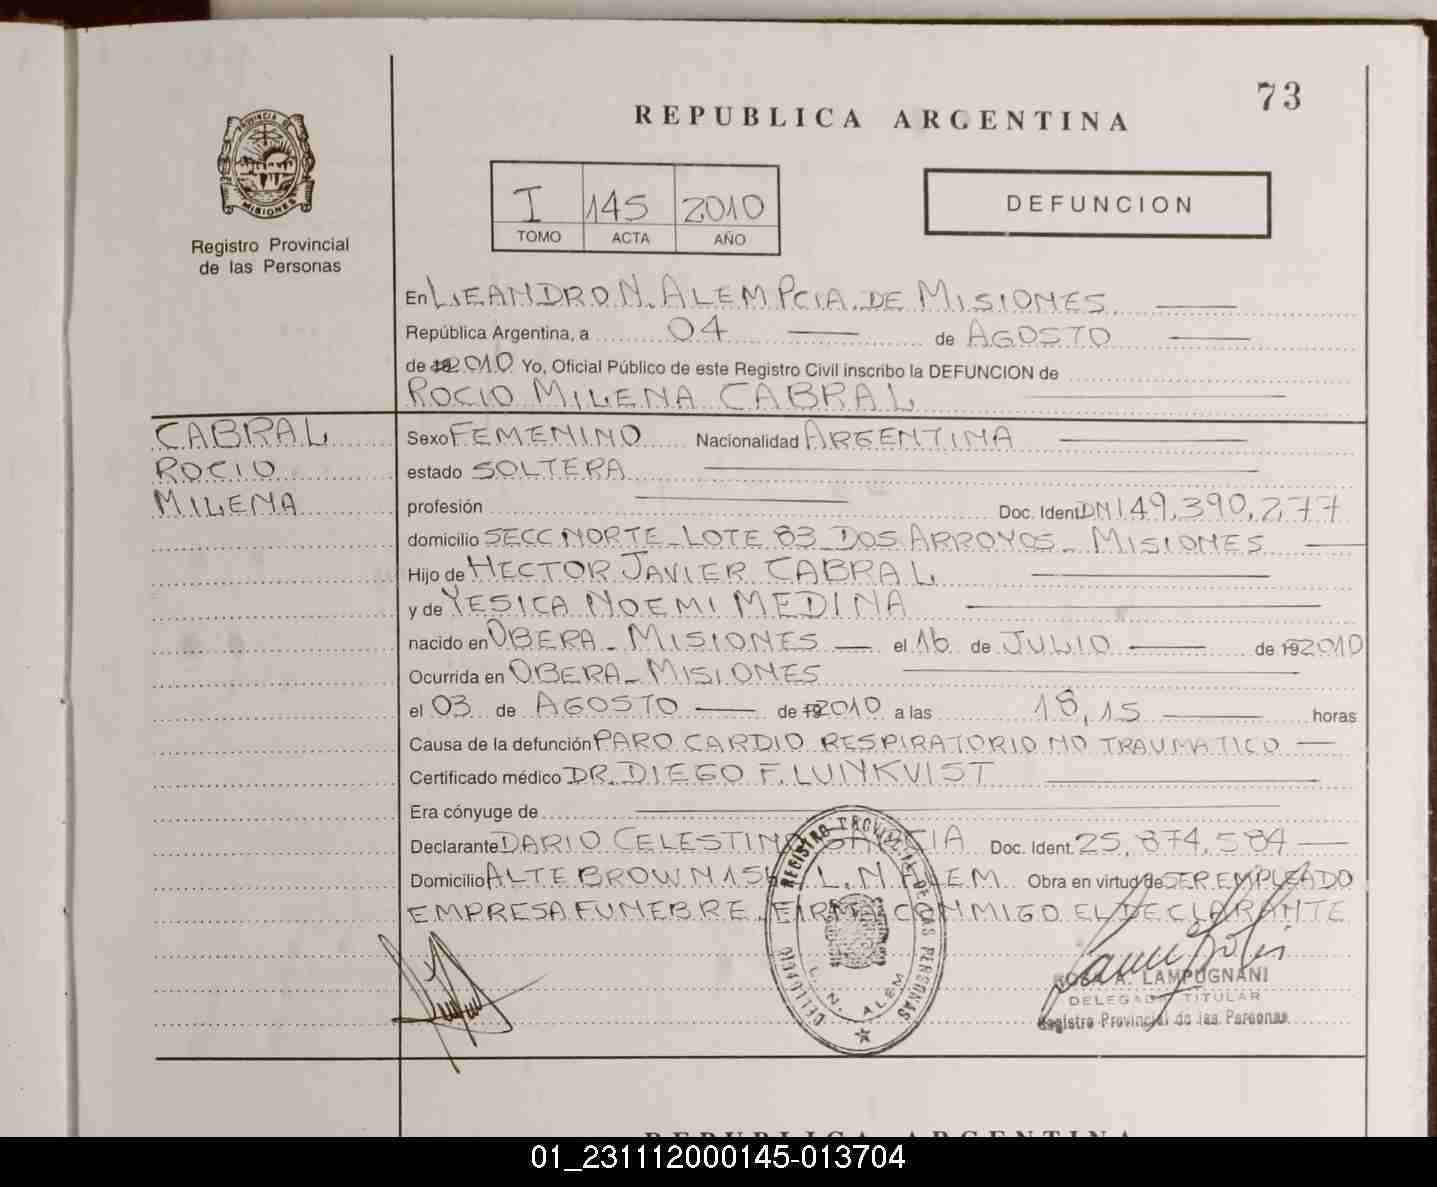 73
REPUBLICA ARGENTINA
PROVINCIA DE
MISIONES
Registro Provincial
de las Personas
I 145 2010
TOMO ACTA AÑO
DEFUNCION
En L.EANDRO N. ALEM PCIA. DE MISIONES
República Argentina, a 04 de AGOSTO
de 2010 Yo, Oficial Público de este Registro Civil inscribo la DEFUNCION de
ROCIO MILENA CABRAL
CABRAL
ROCIO
MILENA
Sexo FEMENINO Nacionalidad ARGENTINA
estado SOLTERA
profesión Doc. Ident. DNI 49,390,277
domicilio SECC NORTE - LOTE 83 DOS ARROYOS - MISIONES
Hijo de HECTOR JAVIER CABRAL
y de YESICA NOEMI MEDINA
nacido en OBERA - MISIONES el 16 de JULIO de 2010
Ocurrida en OBERA - MISIONES
el 03 de AGOSTO de 2010 a las 18,15 horas
Causa de la defunción PARO CARDIO RESPIRATORIO NO TRAUMATICO
Certificado médico DR. DIEGO F. LUNKVIST
Era cónyuge de
Declarante DARIO CELESTINO GARCIA Doc. Ident. 25,874,584
Domicilio ALTE BROWN L. N. ALEM Obra en virtud de SER EMPLEADO
EMPRESA FUNEBRE. FIRMA CONMIGO EL DECLARANTE
REGISTRO PROVINCIAL DE LAS PERSONAS
L. N. ALEM
A. LAMPUGNANI
DELEGADA TITULAR
Registro Provincial de las Personas
REPUBLICA ARGENTINA
01_231112000145-013704